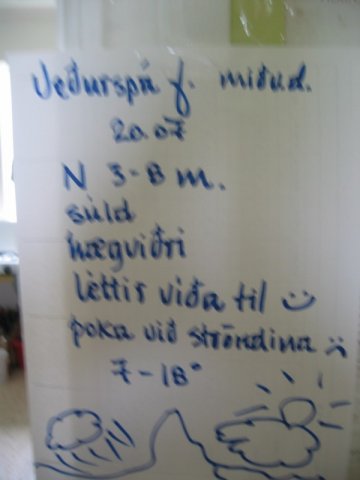 Veðurspá f. miðud.
20.07
N 3-8 m.
súld
hægviðri
Léttir víða til
þoka við ströndina
7-18°